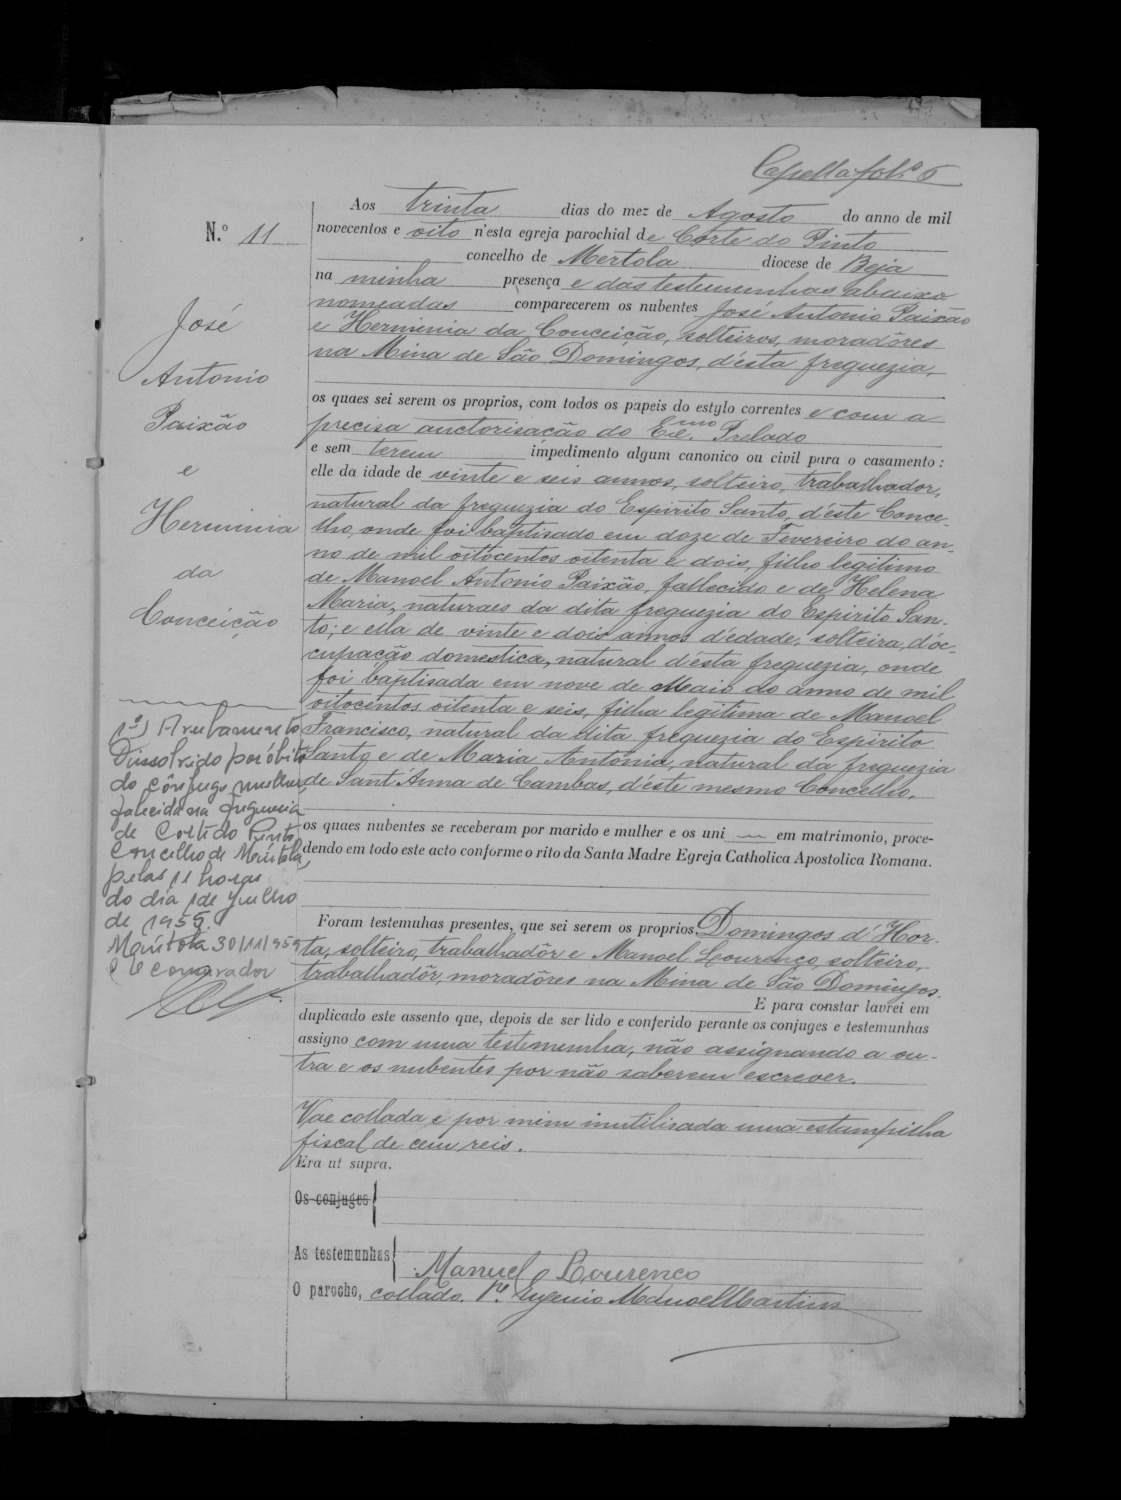 Capella fol. 6
N.º 11
Aos trinta dias do mez de Agosto do anno de mil
novecentos e oito n'esta egreja parochial de Corte do Pinto
concelho de Mertola diocese de Beja
na minha presença e das testemunhas abaixo
nomeadas comparecerem os nubentes José Antonio Paixão
e Herminia da Conceição, solteiros, moradôres
na Mina de São Domingos, d'ésta freguezia,
os quaes sei serem os proprios, com todos os papeis do estylo correntes e com a
precisa auctorisacão do Prelado
e sem terem impedimento algum canonico ou civil para o casamento:
elle da idade de vinte e seis annos, solteiro, trabalhador,
natural da freguezia do Espirito Santo, d'éste Conce-
lho, onde foi baptisado em doze de Fevereiro do an-
no de mil oitocentos oitenta e dois, filho legitimo
de Manoel Antonio Paixão, fallecido e de Helena
Maria, naturaes da dita freguezia do Espirito San-
to; e ella de vinte e dois annos d'édade, solteira, d'óc-
cupacão domestica, natural d'ésta freguezia, onde
foi baptisada em nove de Maio do anno de mil
oitocentos oitenta e seis, filha legitima de Manoel
Francisco, natural da dita freguezia do Espirito
Santo e de Maria Antónia, natural da freguezia
de Sant'Anna de Cambas, d'éste mesmo Concelho.
os quaes nubentes se receberam por marido e mulher e os uni em matrimonio, proce-
dendo em todo este acto conforme o rito da Santa Madre Egreja Catholica Apostolica Romana.
Foram testemuhas presentes, que sei serem os proprios, Domingos d'Hor-
ta, solteiro, trabalhadôr e Manoel Lourenço, solteiro,
trabalhadôr, moradôres na Mina de São Domingos.
E para constar lavrei em
duplicado este assento que, depois de ser lido e conferido perante os conjuges e testemunhas
assigno com uma testemunha, não assignando a ou-
tra e os nubentes por não saberem escrever.
Vae collada e por mim inutilisada uma estampilha
fiscal de cem reis.
Era ut supra.
Os conjuges
As testemunhas
Manuel Lourenço
O parocho, collado. Pe. Eugenio Manoel Martins
José
Antonio
Paixão
e
Herminia
da
Conceição
1º) Averbamento
Dissolvido por óbito
do cônjuge mulher,
falecida na freguesia
de Corte do Pinto,
concelho de Mértola,
pelas 11 horas
do dia 1 de Julho
de 1959.
Mértola 30/11/959
O Conservador